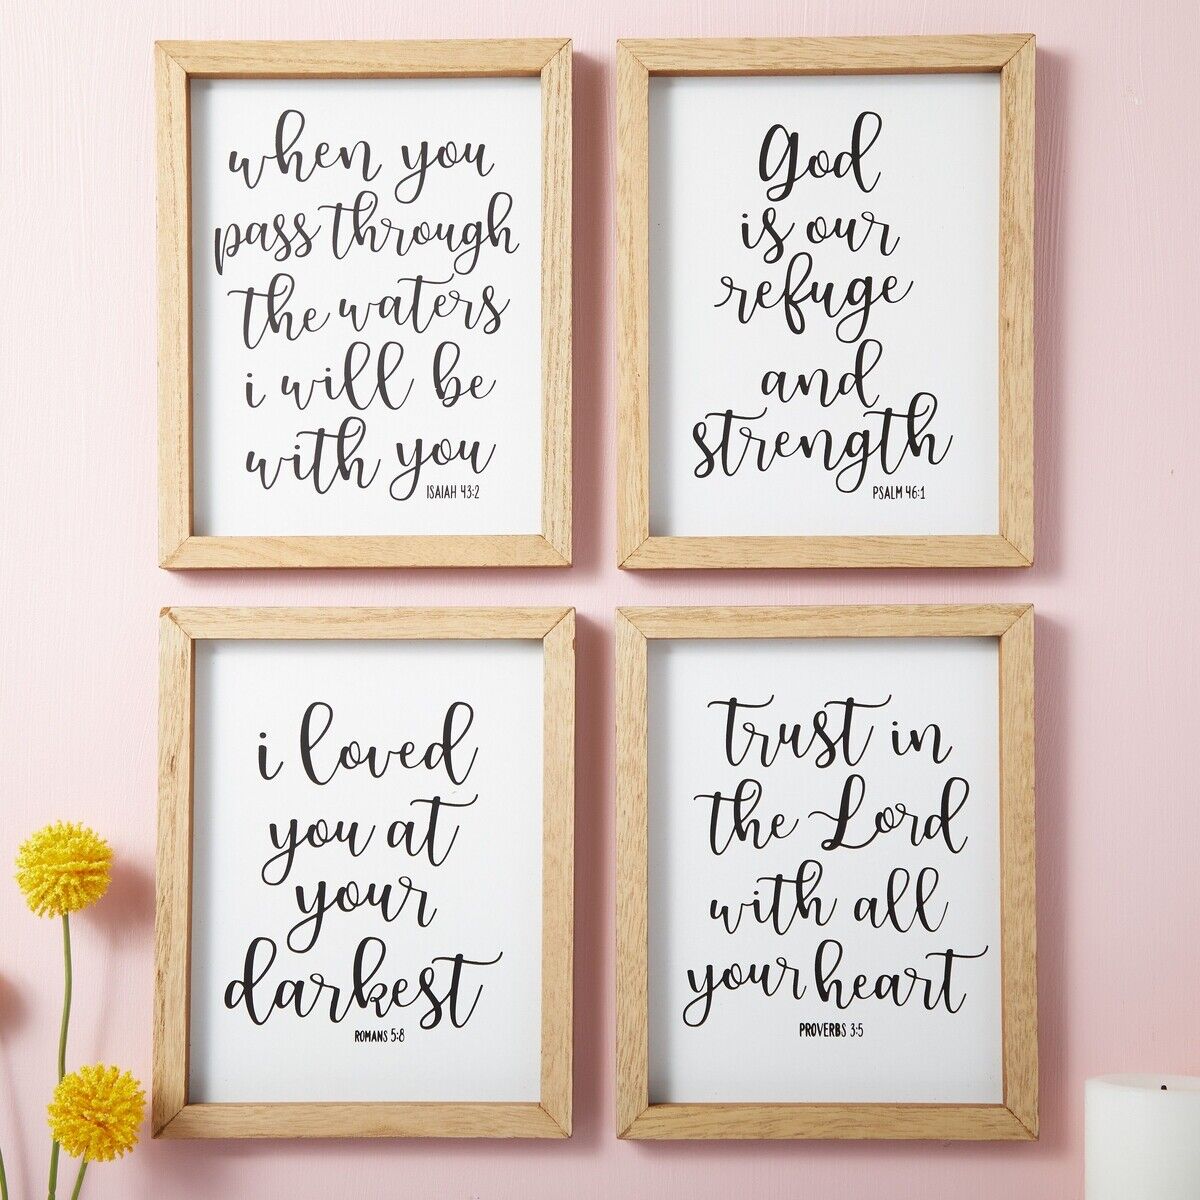 when you
pass through
the waters
i will be
with you
ISAIAH 43:2
God
is our
refuge
and
strength
PSALM 46:1
i loved
you at
your
darkest
ROMANS 5:8
trust in
the Lord
with all
your heart
PROVERBS 3:5